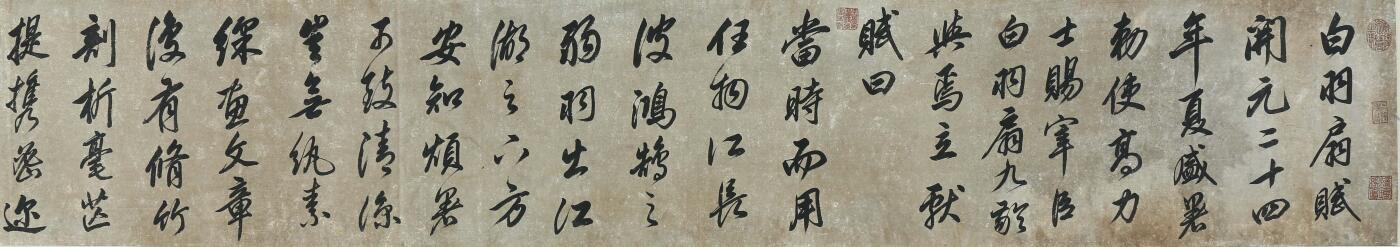 白羽扇賦
開元二十四
年夏盛暑
勅使高力
士賜宰臣
白羽扇九齡
與焉立獻
賦曰
當時而用
任物所長
彼鴻鵠之
弱羽出江
湖之下方
安知煩暑
可致清涼
豈無紈素
綵畫文章
復有脩竹
剖析毫芒
提攜密邇